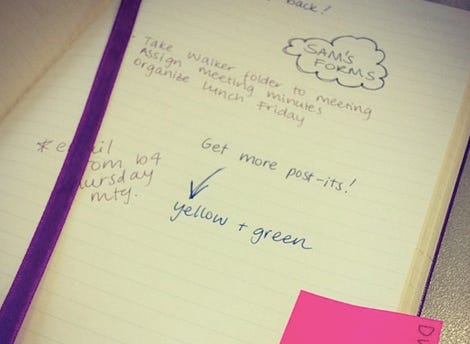 back!
SAM'S
FORMS
- Take Walker folder to meeting
Assign meeting minutes
organize lunch Friday
Get more post-its!
yellow + green
b4
mtg.